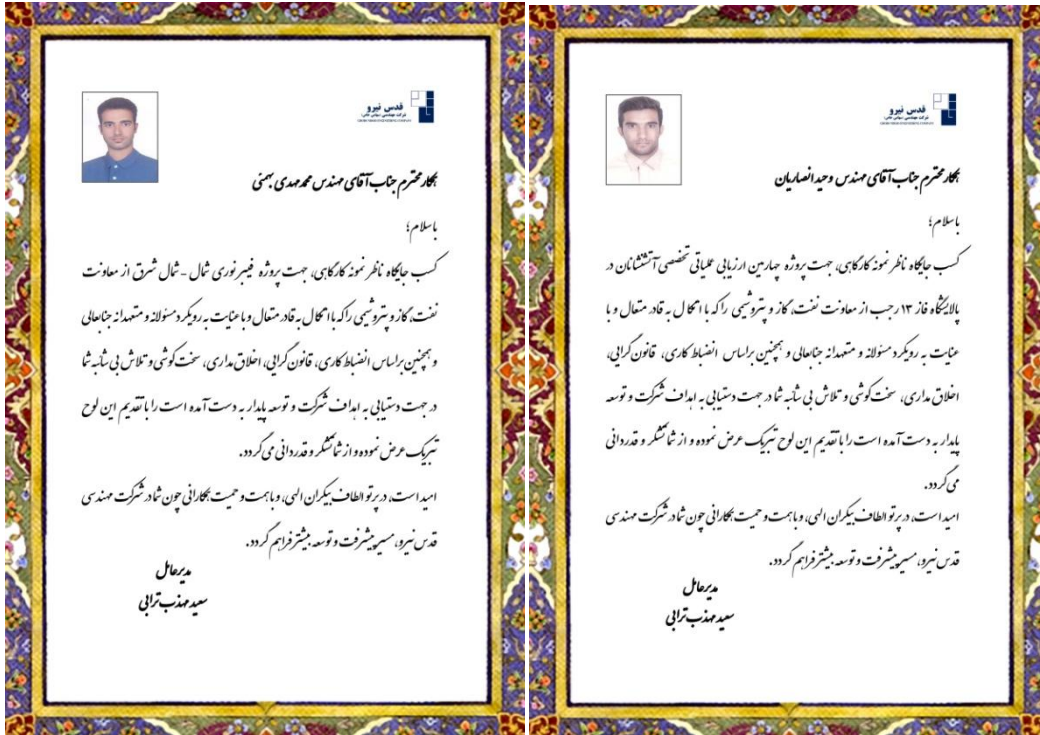 قدس نیرو
همکار محترم جناب آقای مهندس محمدمهدی بهمنی
باسلام؛
کسب جایگاه ناظر نمونه کارگاهی، جهت پروژه فیبر نوری شمال - شمال شرق از معاونت
نفت، گاز و پتروشیمی را که با اتکال به قادر متعال و با عنایت به رویکرد مسئولانه و متعهدانه جنابعالی
و همچنین براساس انضباط کاری، قانون گرایی، اخلاق مداری، سخت کوشی و تلاش بی شائبه شما
در جهت دستیابی به اهداف شرکت و توسعه پایدار به دست آمده است را با تقدیم این لوح
تبریک عرض نموده و از شما تشکر و قدردانی می گردد.
امید است، در پرتو الطاف بیکران الهی، و با همت و حمیت همکارانی چون شما در شرکت مهندسی
قدس نیرو، مسیر پیشرفت و توسعه بیشتر فراهم گردد.
مدیرعامل
سعید مهذب ترابی
قدس نیرو
همکار محترم جناب آقای مهندس وحید انصاریان
باسلام؛
کسب جایگاه ناظر نمونه کارگاهی، جهت پروژه چهارمین ارزیابی عملیاتی تخصصی آتشنشانان در
پالایشگاه فاز ۱۳ رجب از معاونت نفت، گاز و پتروشیمی را که با اتکال به قادر متعال و با
عنایت به رویکرد مسئولانه و متعهدانه جنابعالی و همچنین براساس انضباط کاری، قانون گرایی،
اخلاق مداری، سخت کوشی و تلاش بی شائبه شما در جهت دستیابی به اهداف شرکت و توسعه
پایدار به دست آمده است را با تقدیم این لوح تبریک عرض نموده و از شما تشکر و قدردانی
می گردد.
امید است، در پرتو الطاف بیکران الهی، و با همت و حمیت همکارانی چون شما در شرکت مهندسی
قدس نیرو، مسیر پیشرفت و توسعه بیشتر فراهم گردد.
مدیرعامل
سعید مهذب ترابی